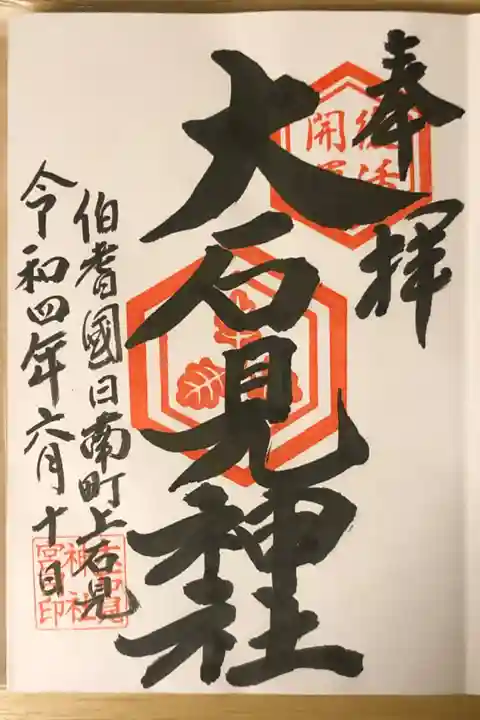 奉拝
復活
開運
大石見神社
伯耆國日南町上石見
令和四年六月十日
大石見
神社
宮司印